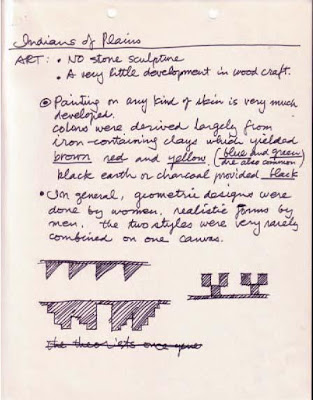 Indians of Plains
ART: • NO stone sculpture
• A very little development in wood craft.
• Painting on any kind of skin is very much
developed.
colors were derived largely from
iron-containing clays which yielded
brown red and yellow (blue and green
are also common)
black earth or charcoal provided black
• In general, geometric designs were
done by women, realistic forms by
men, the two styles were very rarely
combined on one canvas.
the theorists once